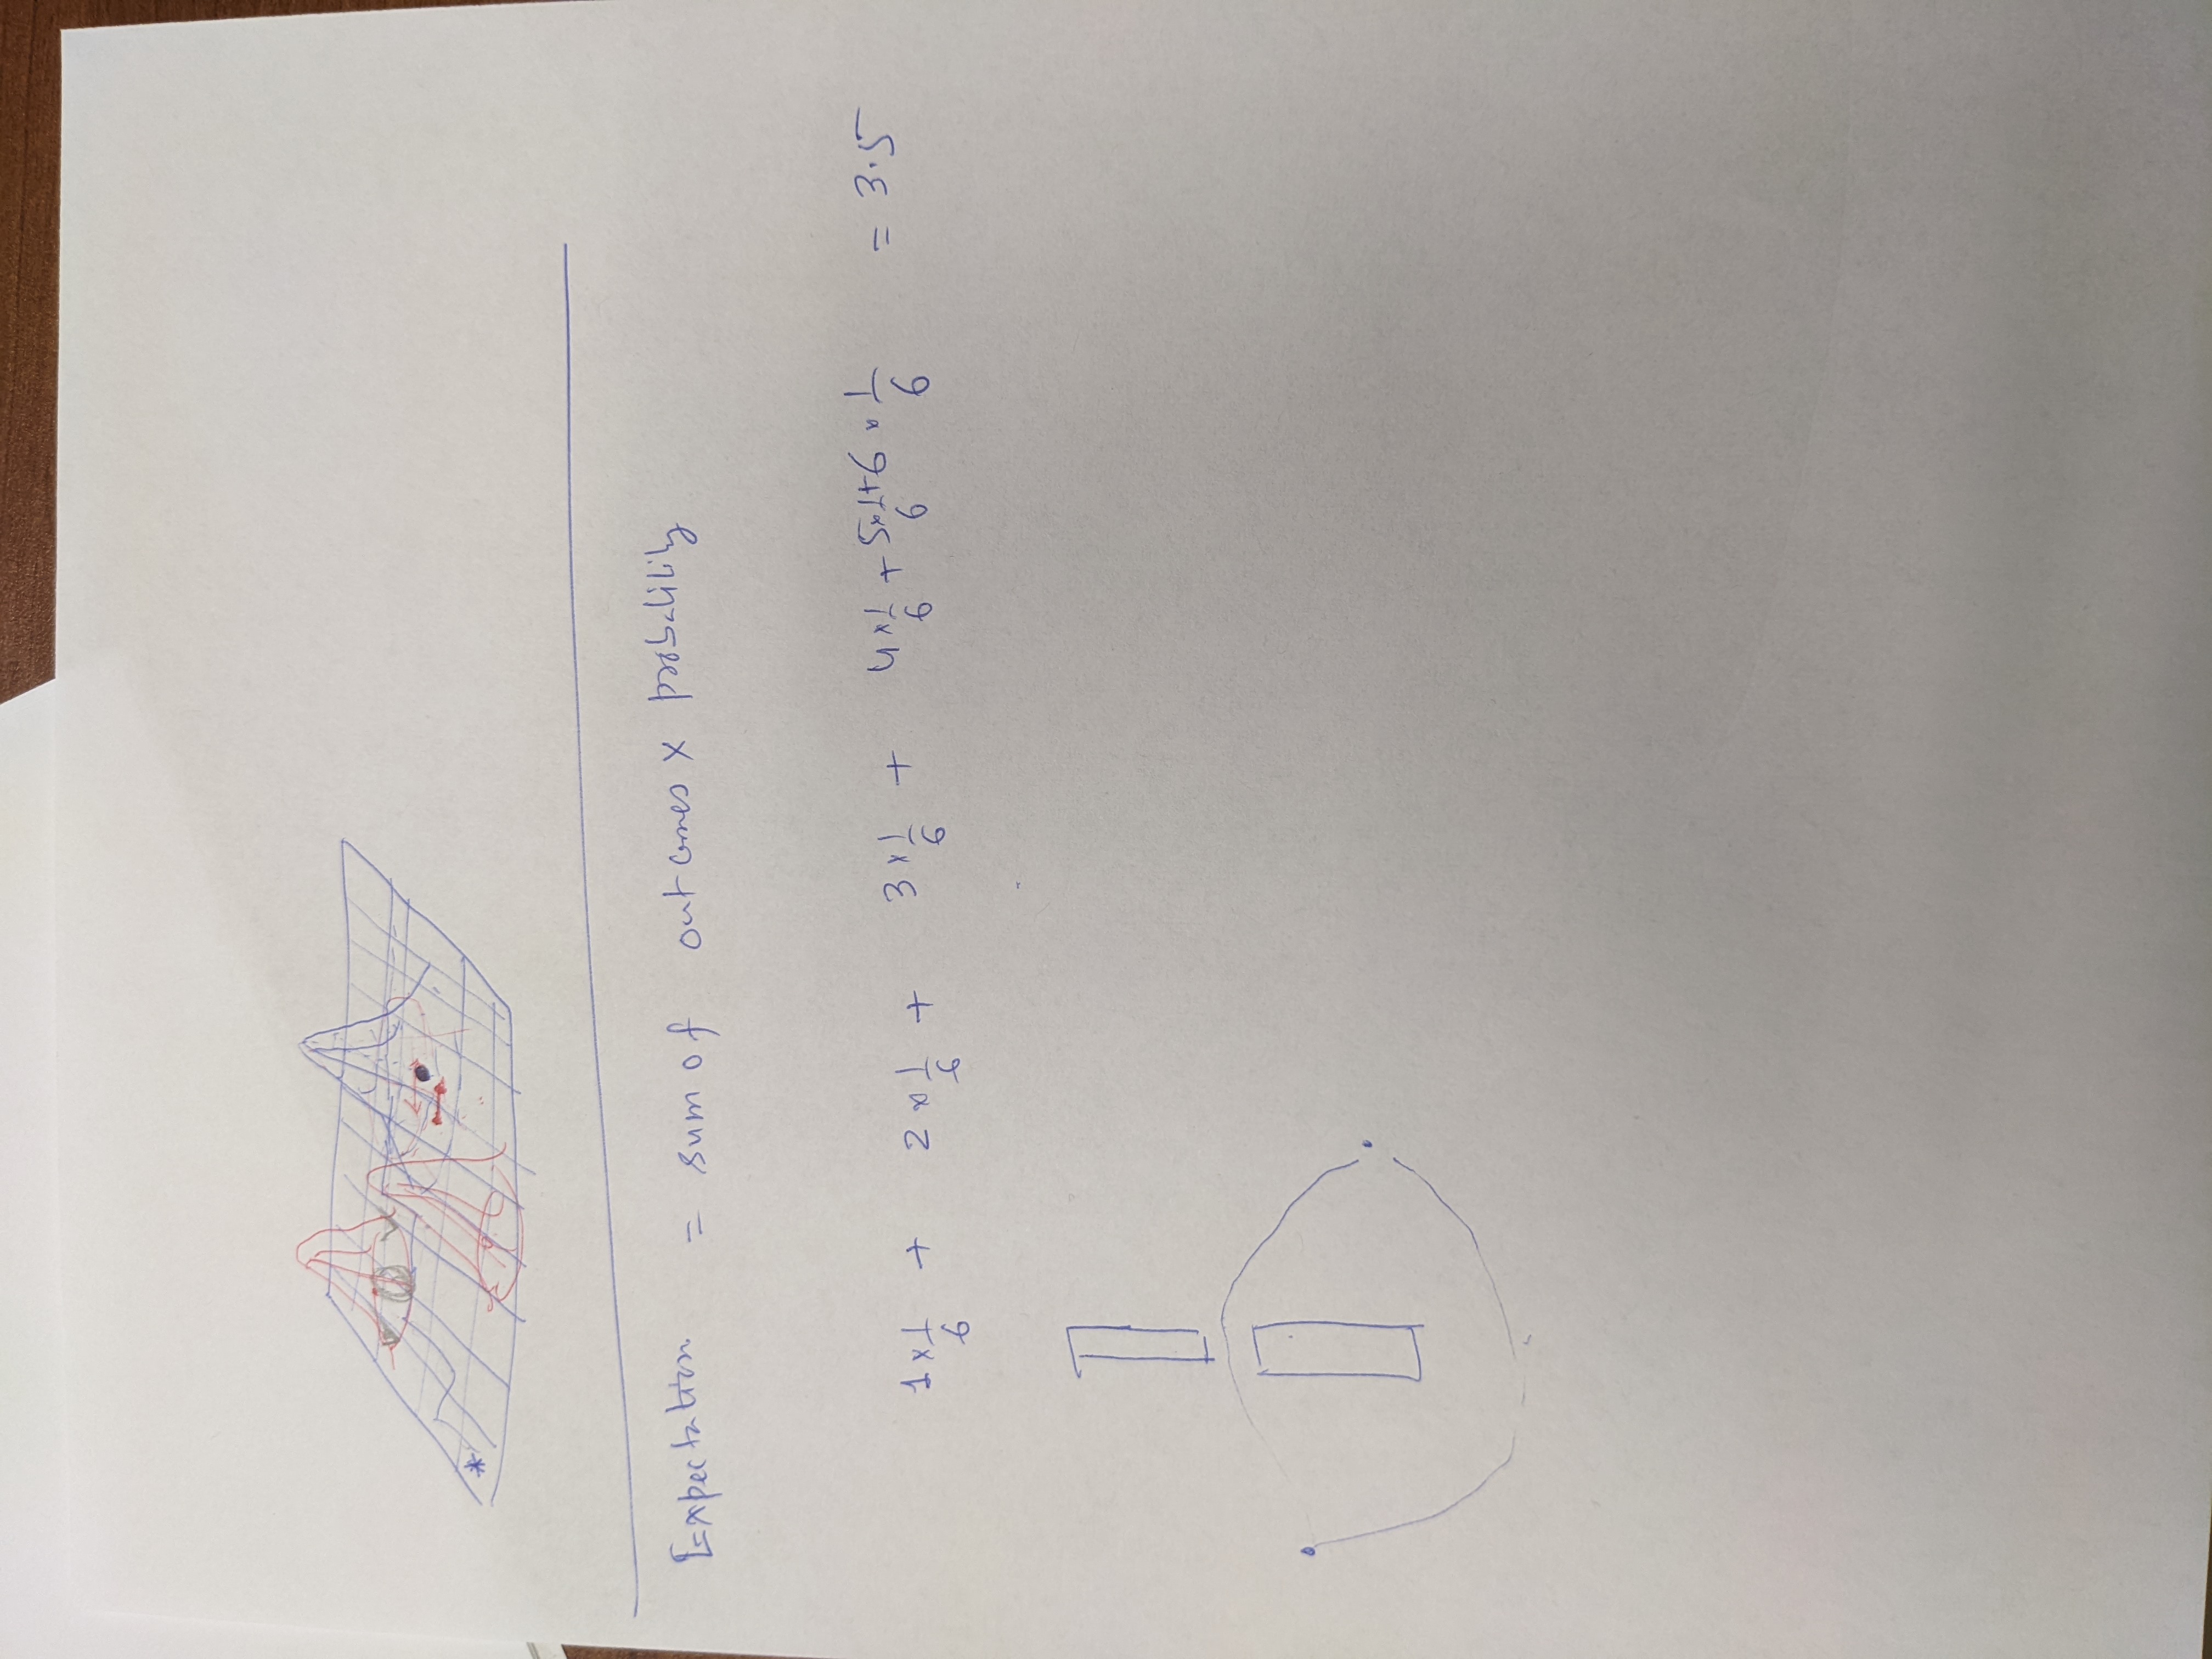 *
Expectation = sum of outcomes x possibility
1 x 1/6 + 2 x 1/6 + 3 x 1/6 + 4 x 1/6 + 5 x 1/6 + 6 x 1/6 = 3.5